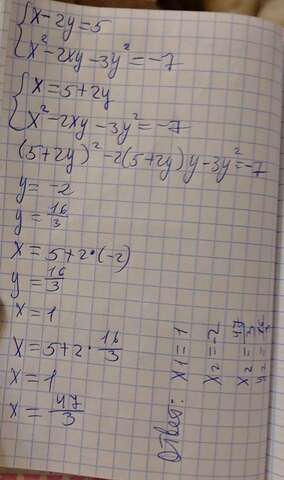 x-2y=5
x²-2xy-3y²=-7
x=5+2y
x²-2xy-3y²=-7
(5+2y)²-2(5+2y)y-3y²=-7
y=-2
y=16/3
x=5+2·(-2)
y=16/3
x=1
x=5+2·16/3
x=1
x=47/3
Ответ: x1=1
x2=-2
x2=47/3